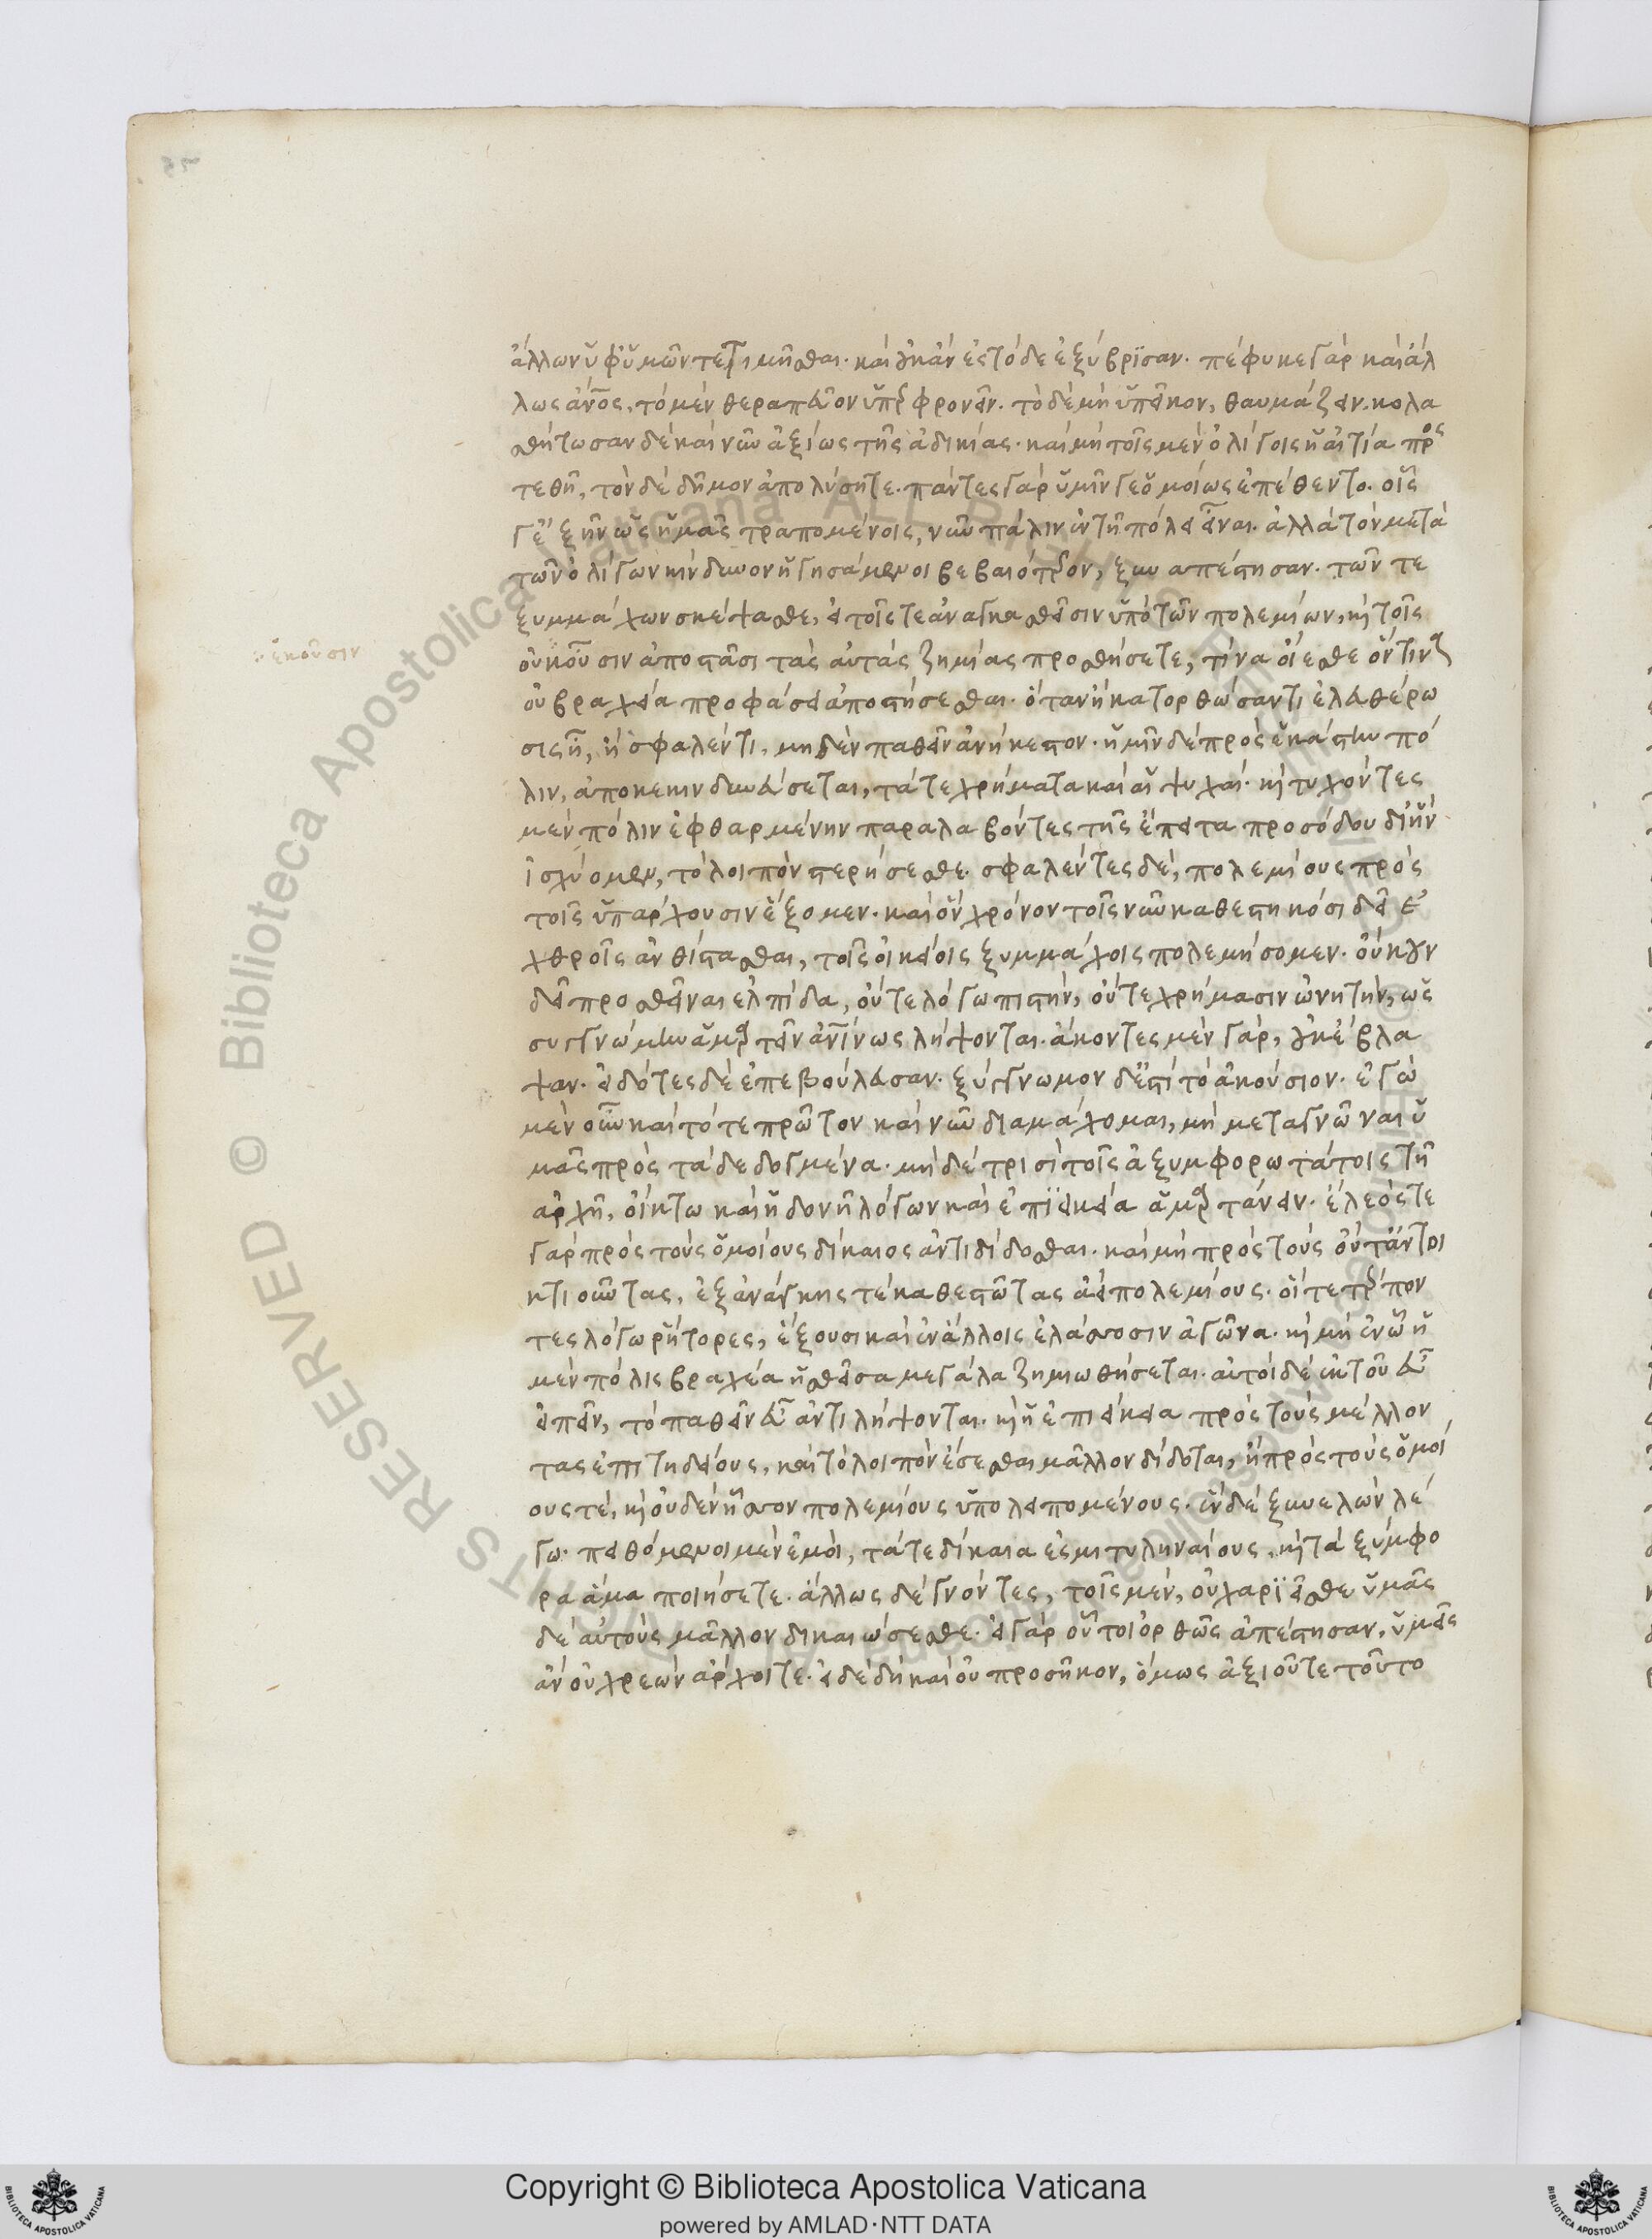 ἄλλων ὑφ' ὑμῶν τετιμῆσθαι. καὶ οὐκ ἂν ἐς τόδε ἐξύβρϊσαν. πέφυκε γὰρ καὶ ἄλ
λως ἄνος, τὸ μὲν θεραπεῦον ὑπερφρονεῖν. τὸ δὲ μὴ ὑπεῖκον, θαυμάζειν. κολα
σθήτωσαν δὲ καὶ νῦν ἀξίως τῆς ἀδικίας. καὶ μὴ τοῖς μὲν ὀλίγοις ἡ αἰτία προς
τεθῆ, τὸν δὲ δῆμον ἀπολύσητε. πάντες γὰρ ὑμῖν γε ὁμοίως ἐπέθεντο. οἷς
γ' ἐξῆν ὡς ἡμᾶς τραπομένοις, νῦν πάλιν ἐν τῆ πόλει εἶναι. ἀλλὰ τὸν μετὰ
τῶν ὀλίγων κίνδυνον ἡγησάμενοι βεβαιότερον, ξυναπέστησαν. τῶν τε
ξυμμάχων σκέψασθε, εἰ τοῖς τε ἀναγκασθεῖσιν ὑπὸ τῶν πολεμίων, καὶ τοῖς
οὐκοῦσιν ἀποστᾶσι τὰς αὐτὰς ζημίας προσθήσετε, τίνα οἴεσθε ὅντινα
ἑκοῦσιν
οὐ βραχεία προφάσει ἀποστήσεσθαι. ὅταν ἢ κατορθώσαντι ἐλευθέρω
σις ἦ, ἢ σφαλέντι, μηδὲν παθεῖν ἀνήκεστον. ἡμῖν δὲ πρὸς ἑκάστην πό
λιν, ἀποκεκινδυνεύσεται, τά τε χρήματα καὶ αἱ ψυχαί. καὶ τυχόντες
μὲν πόλιν ἐφθαρμένην παραλαβόντες τῆς ἔπειτα προσόδου δι' ἣν
ἰσχύομεν, τὸ λοιπὸν στερήσεσθε. σφαλέντες δὲ, πολεμίους πρὸς
τοῖς ὑπάρχουσιν ἕξομεν. καὶ ὃν χρόνον τοῖς νῦν καθεστηκόσι δεῖ ἐ
χθροῖς ἀνθίστασθαι, τοῖς οἰκείοις ξυμμάχοις πολεμήσομεν. οὔκουν
δεῖ προσθεῖναι ἐλπίδα, οὔτε λόγω πιστὴν, οὔτε χρήμασιν ὠνητὴν, ὡς
συγγνώμην ἁμαρτεῖν ἀνίνως λήψονται. ἄκοντες μὲν γὰρ, οὐκ ἔβλα
ψαν. εἰδότες δὲ ἐπεβούλευσαν. ξύγγνωμον δ' ἐστὶ τὸ ἀκούσιον. ἐγὼ
μὲν οὖν καὶ τότε πρῶτον καὶ νῦν διαμάχομαι, μὴ μεταγνῶναι ὑ
μᾶς πρὸς τὰ δεδογμένα. μὴ δὲ τρισὶ τοῖς ἀξυμφορωτάτοις τῆ
ἀρχῆ, οἴκτω καὶ ἡδονῆ λόγων καὶ ἐπϊεικεία ἁμαρτάνειν. ἔλεός τε
γὰρ πρὸς τοὺς ὁμοίους δίκαιος ἀντιδίδοσθαι. καὶ μὴ πρὸς τοὺς οὔτ' ἀντοι
κτιοῦντας, ἐξ ἀνάγκης τὲ καθεστῶτας ἀεὶ πολεμίους. οἵ τε τέρπον
τες λόγω ῥήτορες, ἕξουσι καὶ ἐν ἄλλοις ἐλάσσοσιν ἀγῶνα. καὶ μὴ ἐν ᾧ ἡ
μὲν πόλις βραχέα ἡσθεῖσα μεγάλα ζημιωθήσεται. αὐτοὶ δὲ ἐκ τοῦ εὖ
εἰπεῖν, τὸ παθεῖν εὖ ἀντιλήψονται. καὶ ἡ ἐπιείκεια πρὸς τοὺς μέλλον
τας ἐπιτηδείους, καὶ τὸ λοιπὸν ἔσεσθαι μᾶλλον δίδοται, ἢ πρὸς τοὺς ὁμοί
ους τὲ, καὶ οὐδὲν ἧσσον πολεμίους ὑπολειπομένους. ἓν δὲ ξυνελὼν λέ
γω. πειθόμενοι μὲν ἐμοὶ, τά τε δίκαια ἐς μιτυληναίους, καὶ τὰ ξύμφο
ρα ἅμα ποιήσετε. ἄλλως δὲ γνόντες, τοῖς μὲν, οὐ χαρϊεῖσθε ὑμᾶς
δὲ αὐτοὺς μᾶλλον δικαιώσεσθε. εἰ γὰρ οὗτοι ὀρθῶς ἀπέστησαν, ὑμεῖς
ἂν οὐ χρεὼν ἄρχοιτε. εἰ δὲ δὴ καὶ οὐ προσῆκον, ὅμως ἀξιοῦτε τοῦτο
Copyright © Biblioteca Apostolica Vaticana
powered by AMLAD·NTT DATA